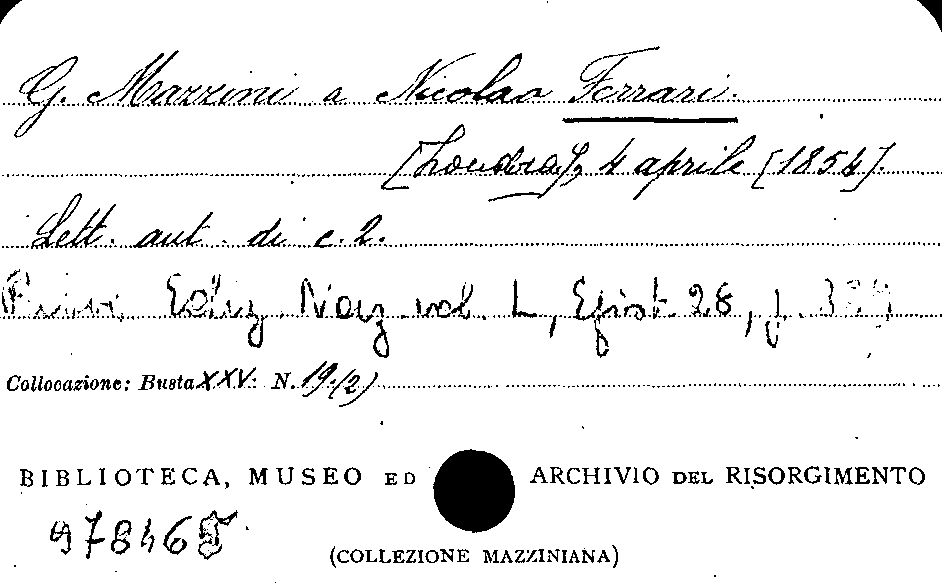 G. Mazzini a Nicolao Ferrari.
[Londra], 4 aprile [1854].
Lett. aut. di c. 2.
Ediz. Naz. vol. L, Epist. 28, p.
Collocazione: Busta XXV: N. 19(2)
BIBLIOTECA, MUSEO ED ARCHIVIO DEL RISORGIMENTO
97846
(COLLEZIONE MAZZINIANA)